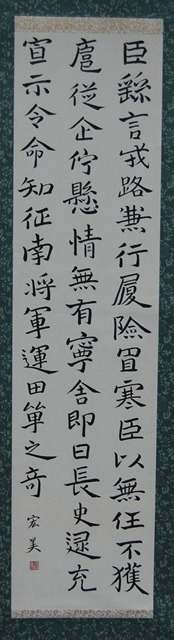 臣繇言戎路兼行履險冒寒臣以無任不獲
扈從企佇懸情無有寧舍即日長史逯充
宣示令命知征南將軍運田單之奇
宏美